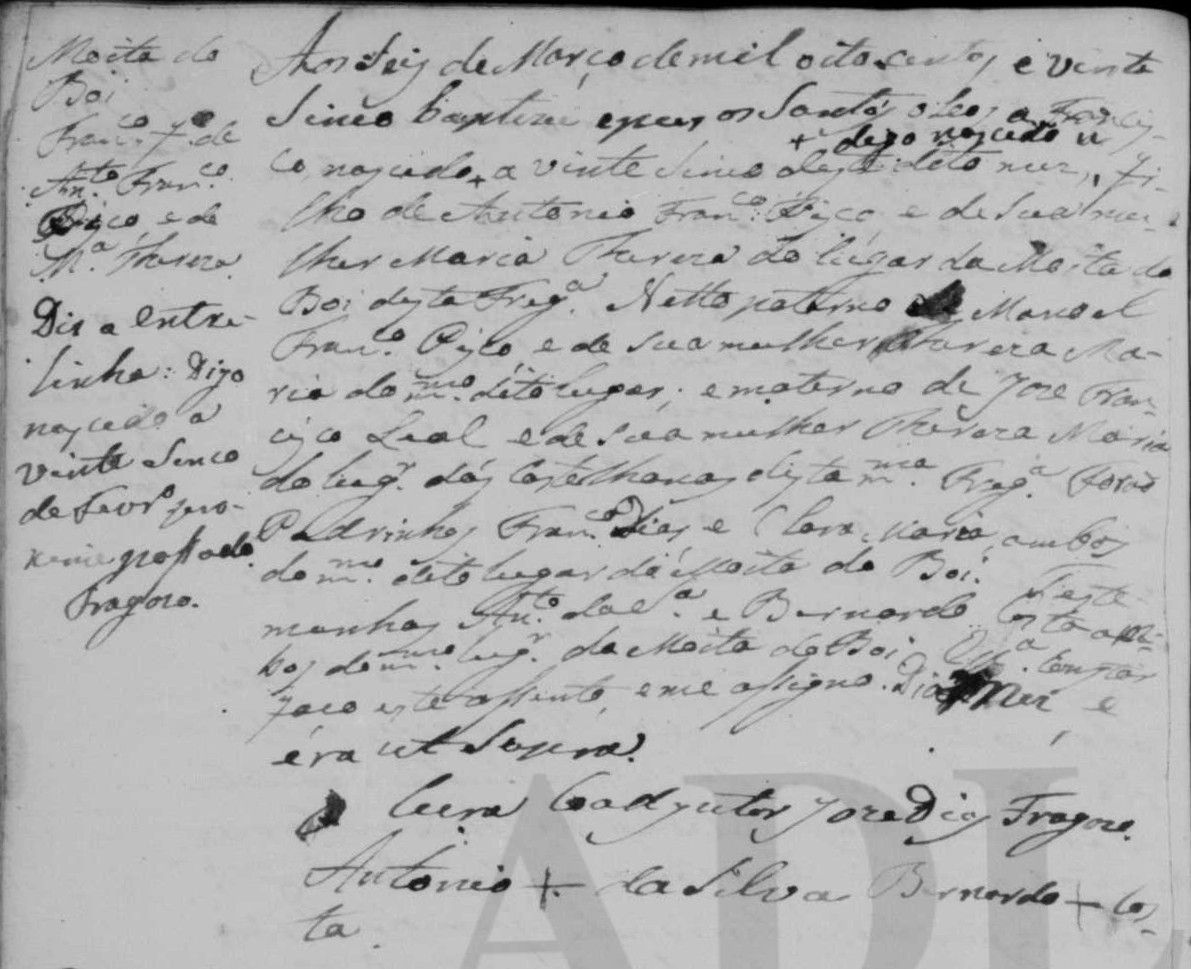 Moita do
Boi
Fran.co f.o de
An.to Fran.co
Pisco, e de
M.a Thereza
Diz a entre-
linha: Digo
nascido a
vinte sinco
de Fevr.o pro-
ximo passado.
Fragozo.
Aos seis de Março de mil oito centos e vinte
sinco baptizei e puz os Santos oleos a Francis-
+ digo nascido
co, nascido + a vinte sinco deste dito mez, fi-
lho de Antonio Fran.co Pisco, e de sua mu-
lher Maria Thereza do lugar da Moita do
Boi desta Freg.a Netto paterno de Manoel
Fran.co Pisco, e de sua mulher Thereza Ma-
ria do m.mo dito lugar; e materno de Joze Fran-
cisco Leal e de sua mulher Thereza Maria
do lug.r das Castelhanas desta m.ma Freg.a Forão
Padrinhos Fran.co Dias e Clara Maria, ambos
do m.mo dito lugar da Moita do Boi. Teste-
munhas An.to da S.a e Bernardo Costa am-
bos do m.mo lug.r da Moita do Boi
faço este assento, e me assigno. Dia Mez e
éra ut supra.
O Cura Coadjutor Joze Dias Fragozo.
Antonio + da Silva Bernardo + Cos-
ta.
ADL